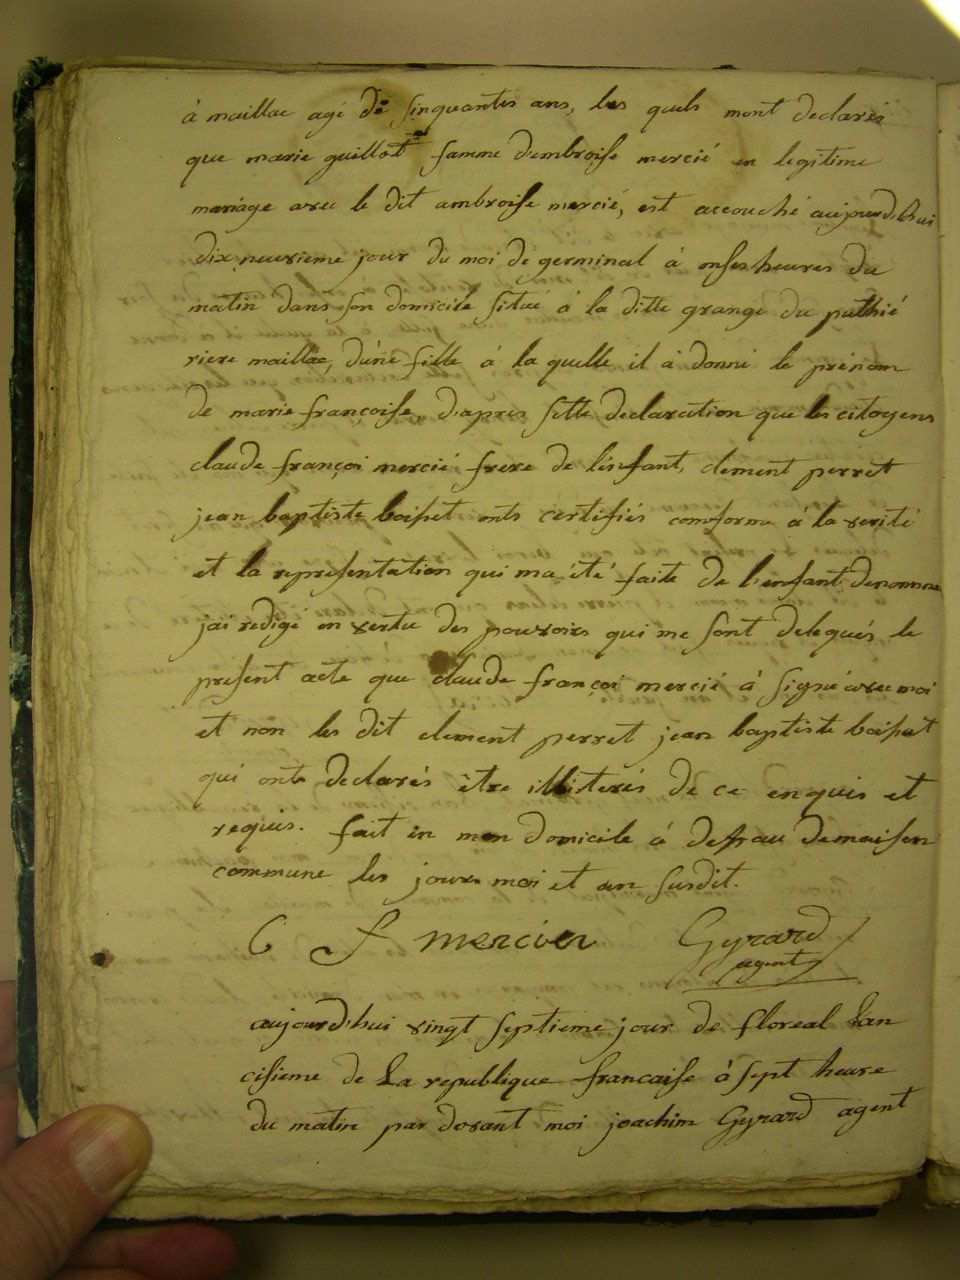 à maillac agé de sinquantes ans, les quels mont declarés
que marie guillot famme d'embroise mercié en legitime
mariage avec le dit ambroise mercié, est accouché aujourdhui
dix neuvieme jour du moi de germinal à onses heures du
matin dans son domicile situé à la ditte grange du puthié
riere maillac, d'une fille à la quelle il à donné le prénom
de marie françoise, d'apres sette declaration que les citoyens
claude françoi mercié frere de l'enfant, clement perret
jean baptiste boisset onts certifiés comforme à la verité
et la representation qui ma été faite de l'enfant denommé
jai redigé en vertu des pouvoirs qui me sont delegués le
present acte que claude françoi mercié à signé avec moi
et non les dit clement perret jean baptiste boisset
qui onts declarés être illiterés de ce enquis et
requis. fait in mon domicile à
commune les jours moi et an susdit.
C f mercier Gyrard
agent
aujourd'hui vingt septieme jour de floreal lan
cisieme de La republique francaise à sept heure
du matin par devant moi joachim Gyrard agent